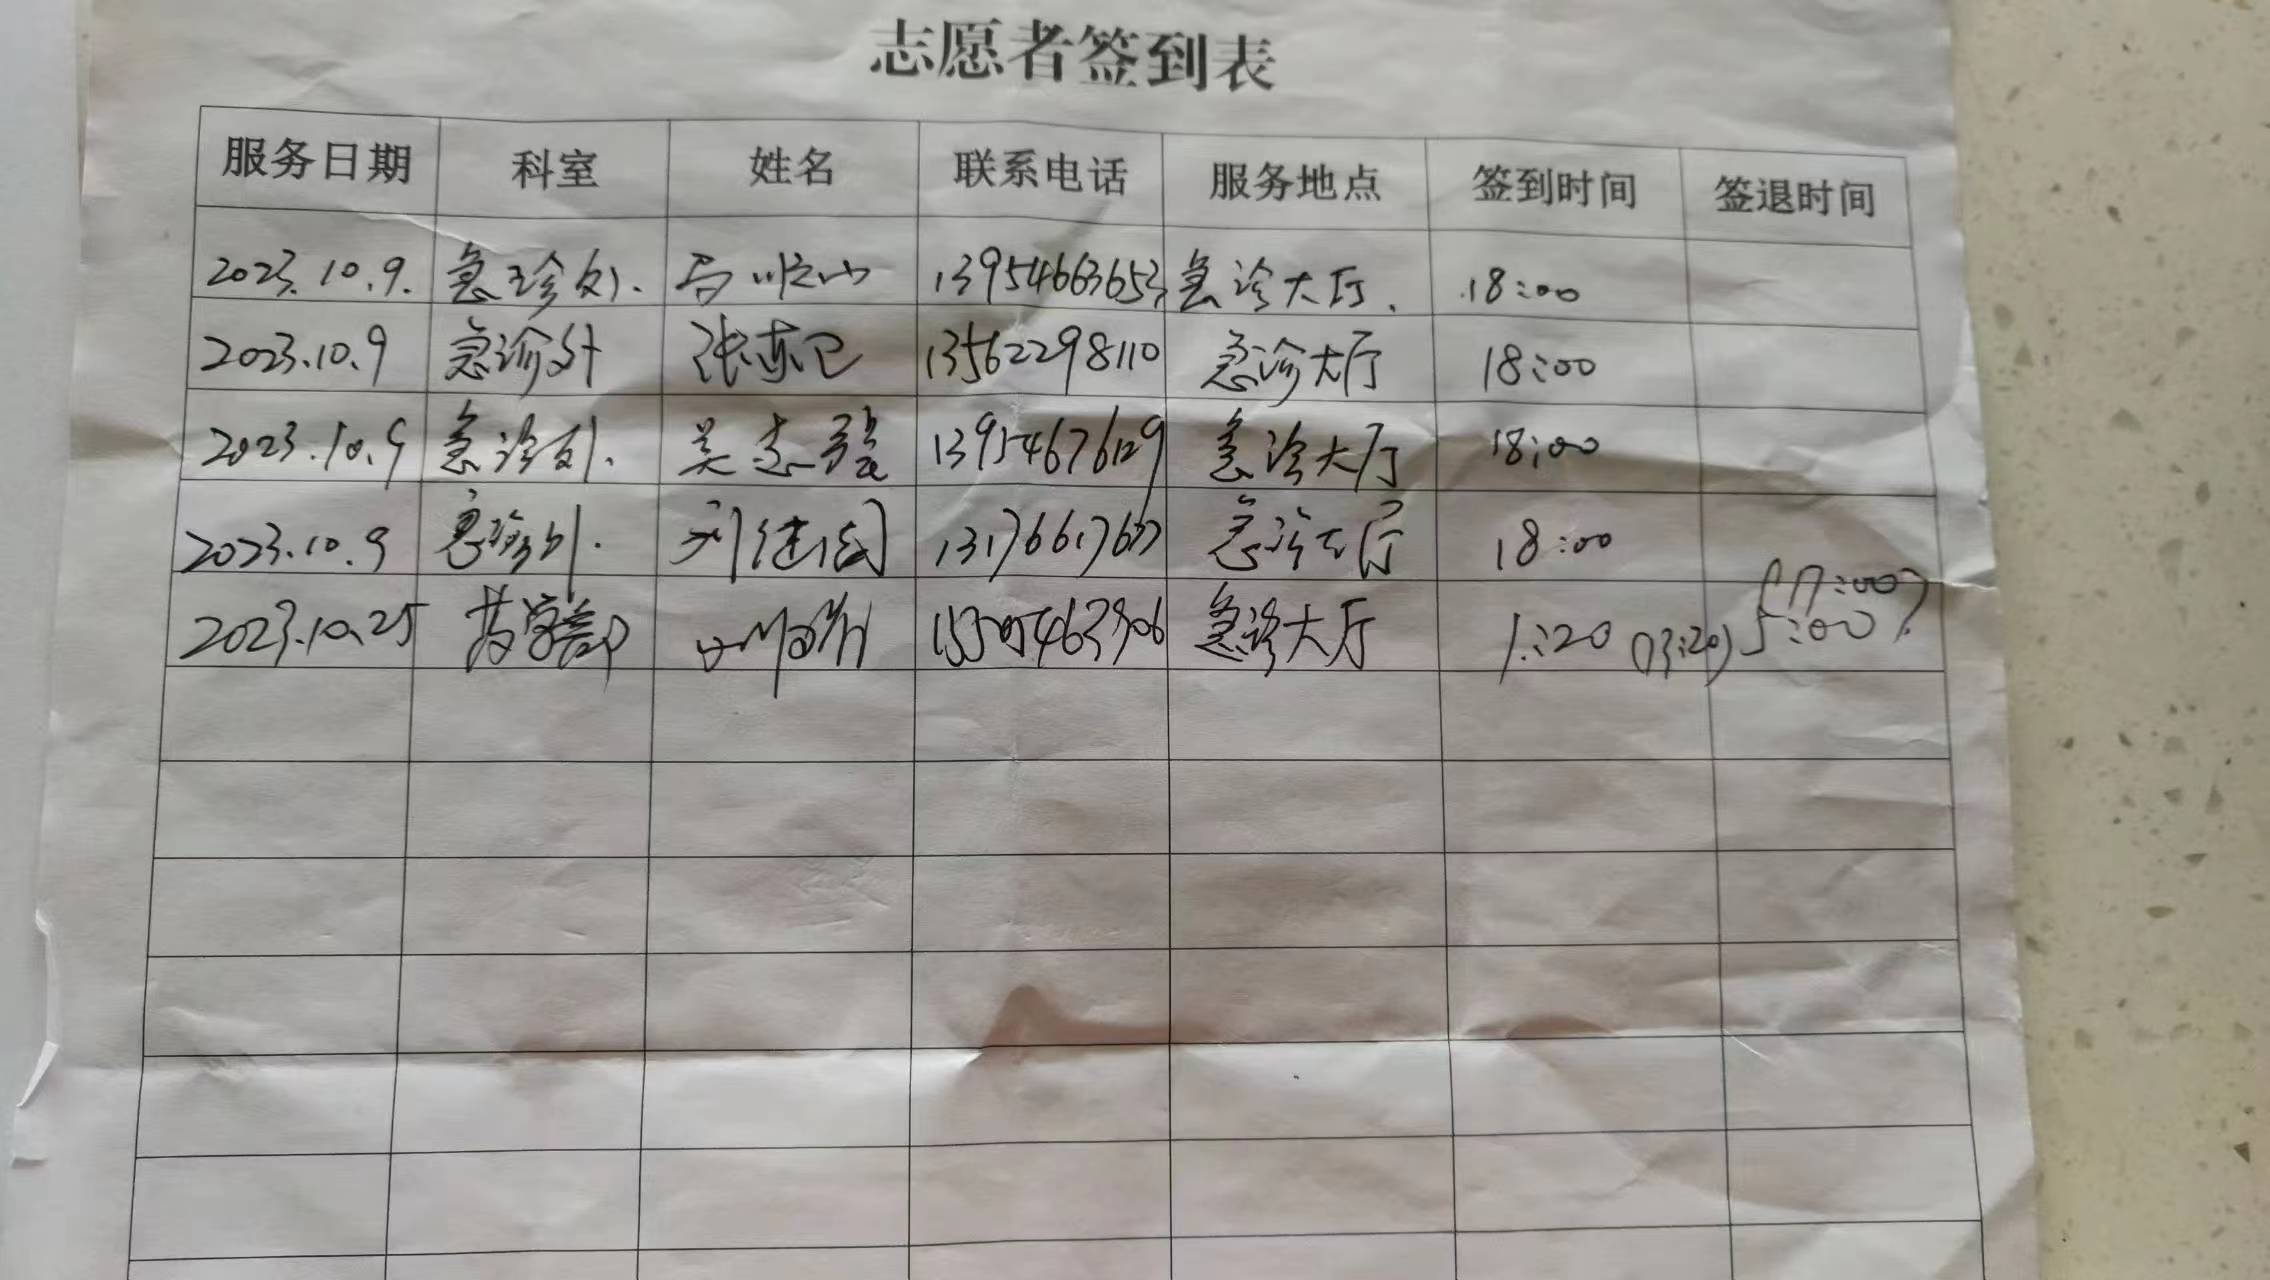 志愿者签到表
服务日期 科室 姓名 联系电话 服务地点 签到时间 签退时间
2023.10.9. 急诊外. 马顺山 13954663653 急诊大厅. 18:00
2023.10.9 急诊外 张东卫 13562298110 急诊大厅 18:00
2023.10.9 急诊外. 吴志强 13954676129 急诊大厅 18:00
2023.10.9 急诊外. 急诊大厅 18:00
(17:00)
2023.10.25 药学部 急诊大厅 1:20 (13:20) 5:00